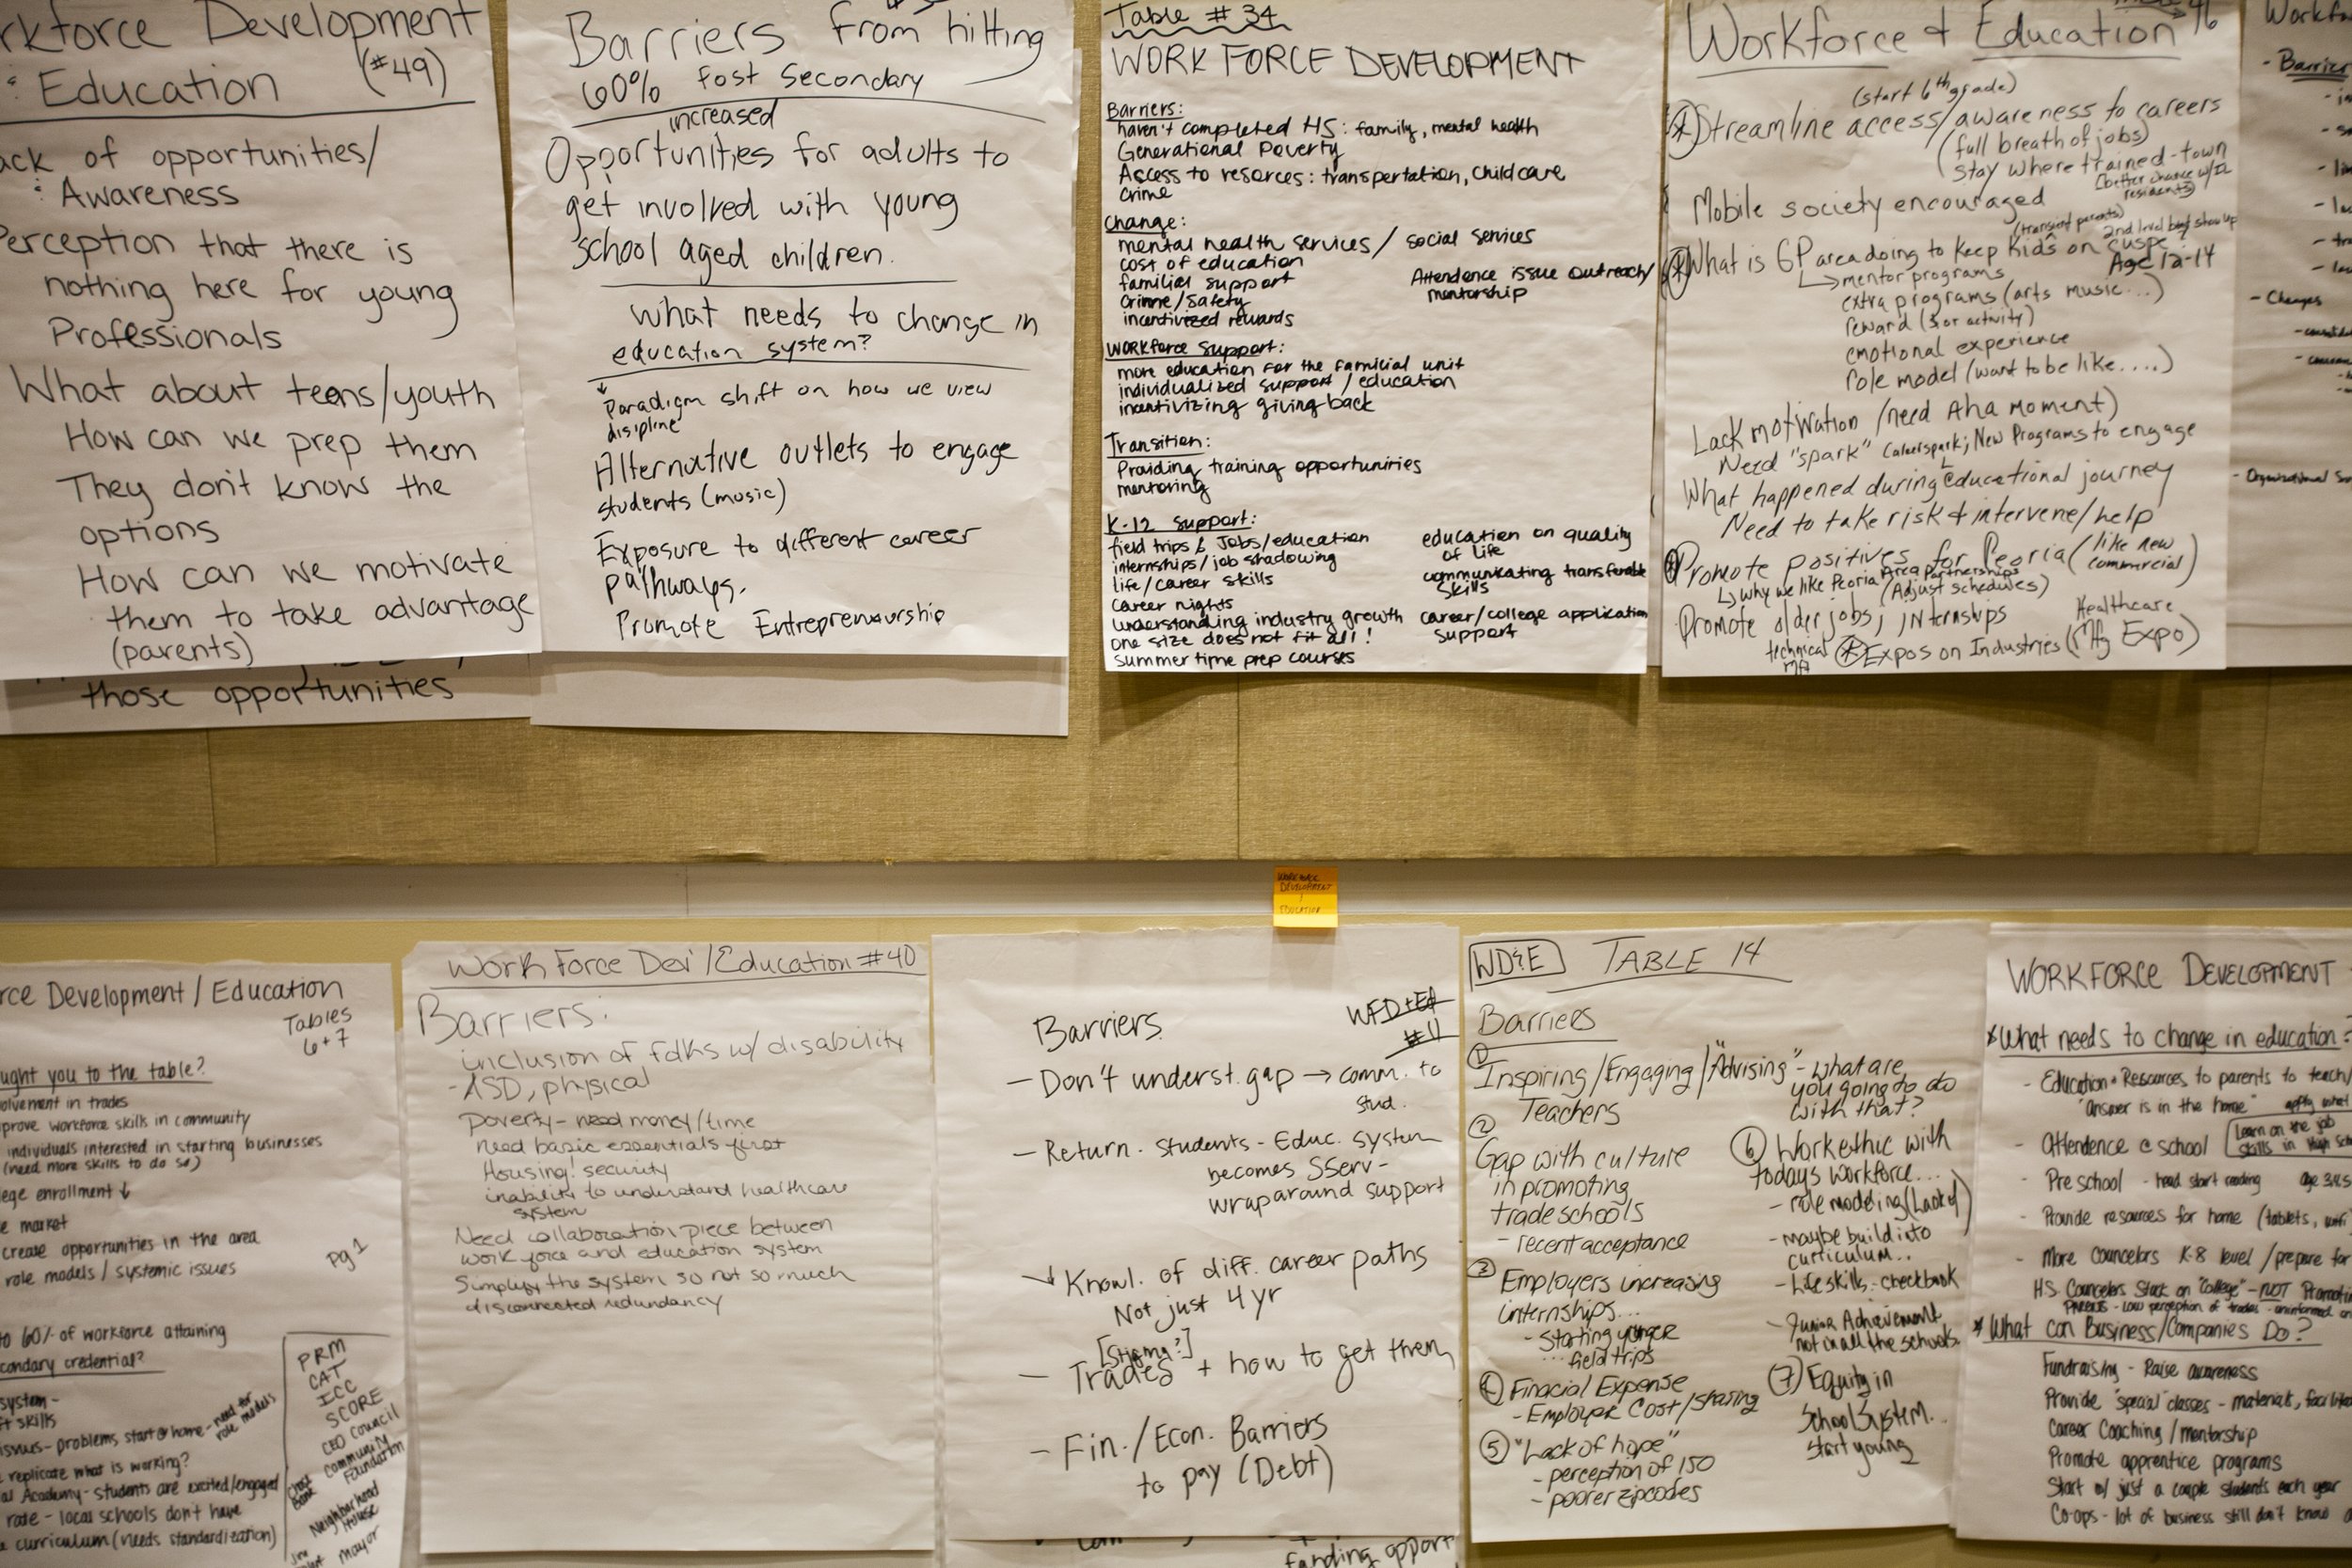 rkforce Development
& Education (#49)
ack of opportunities/
Awareness
Perception that there is
nothing here for young
Professionals
What about teens/youth
How can we prep them
They don't know the
options
How can we motivate
them to take advantage
(parents)
those opportunities
Barriers from hitting
60% Post Secondary
increased
Opportunities for adults to
get involved with young
school aged children.
What needs to change in
education system?
Paradigm shift on how we view
disipline
Alternative outlets to engage
students (music)
Exposure to different career
pathways.
Promote Entreprenuurship
Table # 34
WORK FORCE DEVELOPMENT
Barriers:
haven't completed HS: family, mental health
Generational Poverty
Access to resorces: transpertation, childcare
crime
Change:
mental health services / social services
cost of education
familial support
Attendence issue outreach/
mentorship
Crime/Safety
incentivized rewards
Workforce Support:
more education for the familial unit
individualized support / education
incentivizing giving back
Transition:
Providing training opportunities
mentoring
K-12 support:
field trips & Jobs/education
internships/job shadowing
life/career skills
Career nights
understanding industry growth
one size does not fit all!
Summertime prep courses
education on quality
of life
communicating transferable
skills
career/college application
support
Workforce & Education
46
(start 6th grade)
Streamline access/awareness to careers
(full breath of jobs)
stay where trained-town
(better chance w/
residents)
Mobile society encouraged
(transient parents)
What is GP area doing to keep kids on cusp
Age 12-14
mentor programs
extra programs (arts music...)
reward ($ or activity)
emotional experience
role model (want to be like....)
Lack motivation /need Aha Moment)
Need "spark" Careerspark; New Programs to engage
What happened during educational journey
Need to take risk & intervene/help
Promote positives for Peoria (like new
commercial)
why we like Peoria Area Partnerships
(Adjust schedules)
Promote older jobs, internships
technical
Healthcare
Expos on Industries (Mfg Expo)
Workfo
- Barrier
- Changes
- Organizational Su
WORKFORCE
DEVELOPMENT
/
EDUCATION
rce Development / Education
Tables
6+7
ught you to the table?
olvement in trades
prove workforce skills in community
individuals interested in starting businesses
(need more skills to do so)
ege enrollment ↓
e market
create opportunities in the area
role models / systemic issues
Pg 1
to 60% of workforce attaining
condary credential?
system-
ft skills
issues - problems start @ home - need for
role models
replicate what is working?
al Academy - students are excited/engaged
rate - local schools don't have
curriculum (needs standardization)
PRM
CAT
ICC
SCORE
CEO Council
Community
Foundation
Neighborhood
House
mayor
Work Force Dev /Education #40
Barriers:
inclusion of folks w/ disability
- ASD, physical
Poverty - need money/time
need basic essentials first
Housing! security
inability to understand healthcare
system
Need collaboration piece between
work force and education system
Simplify the system so not so much
disconnected redundancy
Barriers
WFD+Ed
#11
- Don't underst. gap → comm. to
stud.
- Return. students - Educ. system
becomes SServ -
wraparound support
Knowl. of diff. career paths
Not just 4 yr
[Stigma?]
- Trades + how to get them
- Fin./Econ. Barriers
to pay (Debt)
funding opport
WD&E TABLE 14
Barriers
① Inspiring/Engaging/"Advising" - what are
you going to do
with that?
Teachers
②
Gap with culture
in promoting
trade schools
- recent acceptance
③ Employers increasing
internships...
- starting younger
... field trips
④ Finacial Expense
- Employer Cost/sharing
⑤ "Lack of hope"
- perception of 150
- poorer zipcodes
⑥ Work ethic with
todays workforce...
- role modeling (Lack of)
- maybe build into
curriculum..
- Life skills - checkbook
- Junior Achievement
not in all the schools.
⑦ Equity in
School System..
start young
WORKFORCE DEVELOPMENT
* What needs to change in education?
- Education & Resources to parents to teach/
"Answer is in the home" apply what
- Attendence @ school
Learn on the job
skills in High Sch
- Preschool - head start reading age 3,4,5
- Provide resources for home (tablets, wifi
- More Councelors K-8 level / prepare for
H.S. Councelors Stuck on "College" - NOT Promotin
PARENTS - Low perception of trades - uninformed on
* What can Business/Companies Do?
Fundraising - Raise awareness
Provide "special" classes - materials, facilitat
Career Coaching / mentorship
Promote apprentice programs
Start w/ just a couple students each year
Co-ops - lot of business still don't know